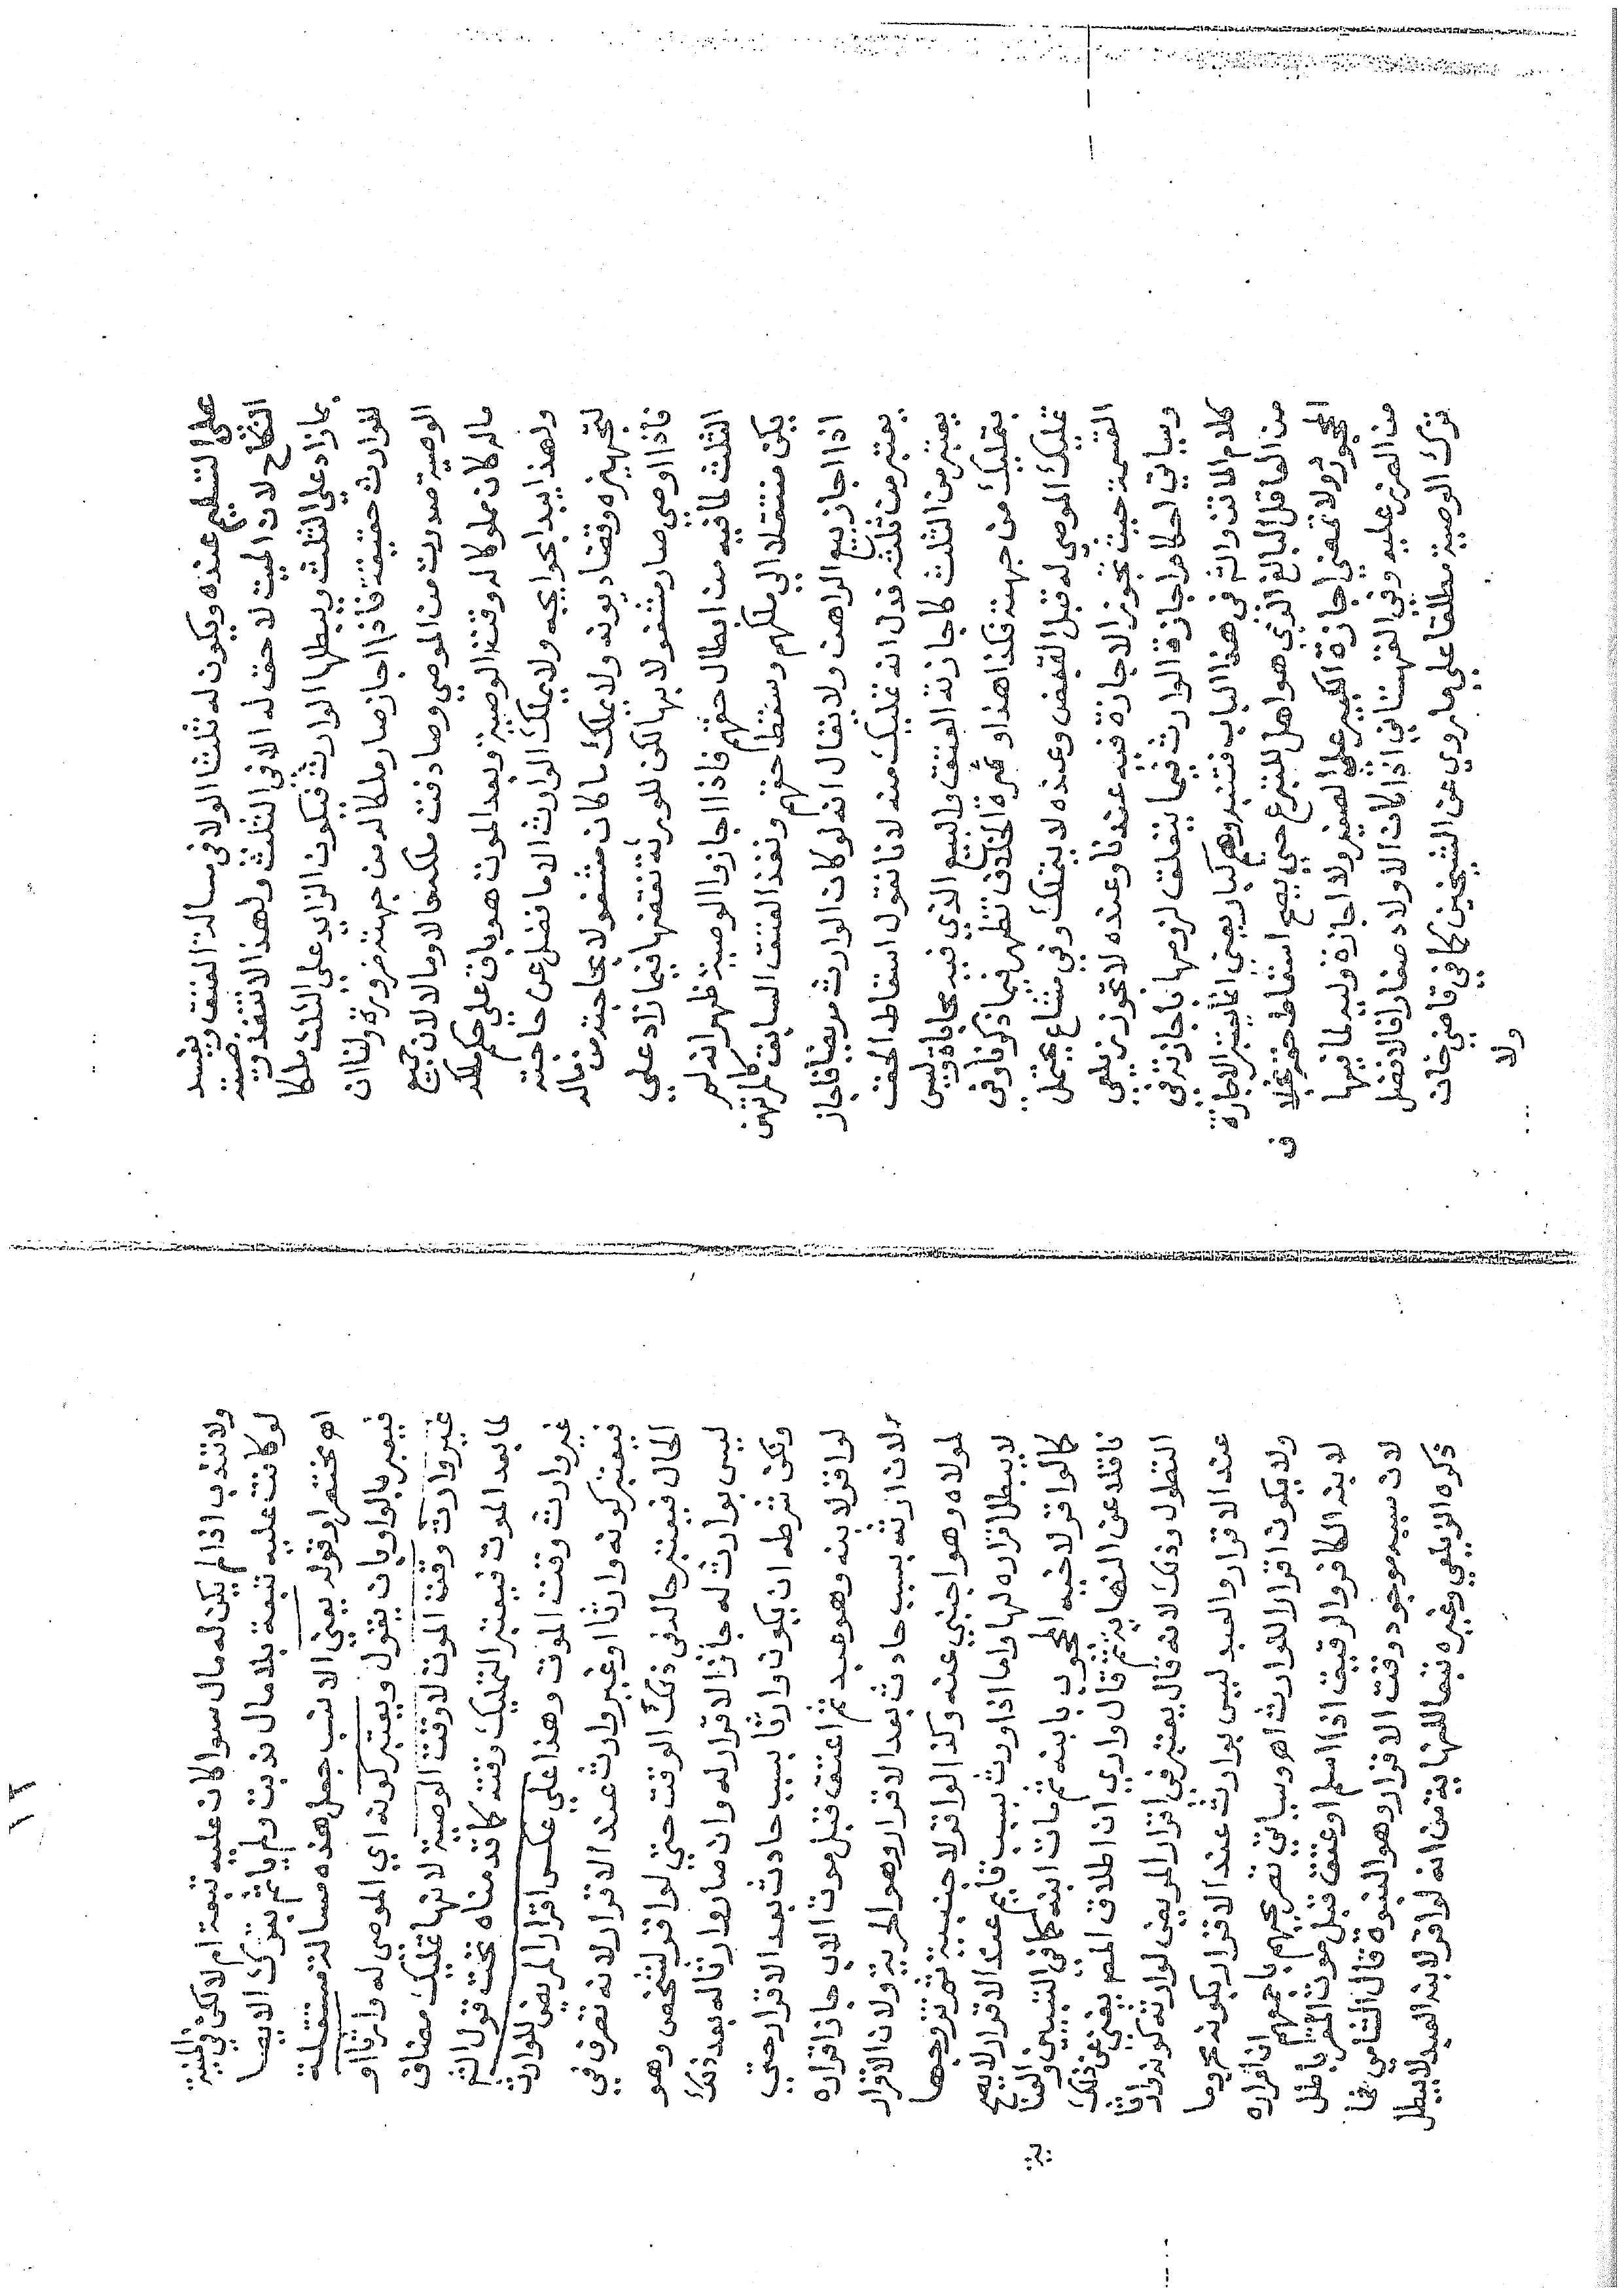 على التسليم عنده ويكون له ثلثا الولا في مسالة العتق ويفسد
النكاح لان الميت لا حق له الا في الثلث ولهذا لا تنفذ وصيته
بما زاد علي الثلث ويبطلها الوارث فيكون الزايد علي الثلث ملكا
للوارث حقيقة فاذا اجاز صار ملكا له من جهته ضرورة ولنا ان
الوصية صدرت من الموصي وصادفت ملكه حالا ومالا لان جميع
ماله كان مملوكا له وقت الوصية وبعد الموت هو باق علي حكم ملكه
ولهذا يبدا بحوايجه ولا يملك الوارث الا ما فضل عن حاجته
لتجهيزه وقضا ديونه ولا يملك ما كان مشغولا بحاجته من ماله
فاذا اوصي صار مشغولا بها لكن للورثة نقضها فيما زاد علي
الثلث لما فيه من ابطال حقهم فاذا اجازوا الوصية ظهر انه لم
يكن منتقلا الي ملكهم وسقط حقهم ونفذ العتق السابق كالمرتهن
اذا اجاز بيع الراهن ولا يقال انه لو كان الوارث مريضا فاجاز
يعتبر من ثلثه فدل انه تمليك منه لانا نقول اسقاط الحق
يعتبر من الثلث كاجازته العتق والبيع الذي فيه محاباة وليس
بتمليك من جهته فكذا هذا او ثمرة الخلاف تظهر فيما ذكرنا وفي
تمليك الموصي له قبل القبض وعنده لا يتملك وفي مشاع يحتمل
القسمة حيث تجوز الاجازة فيه عندنا وعنده لا تجوز زيلعي
وسياتي احكام اجازة الوارث فيما يتعلق لزومها باجازته في
كلام الماتن والش في هذا الباب فتنبه وهم كبار يعني انما يعتبر الاجازة
من العاقل البالغ الذي هو اهل للتبرع حتي يصح اسقاط حقه بخلا ف
المحجور ولا تمضي اجازة الكبير علي الصغير ولا اجازة وليه لما فيها
من الضرر عليه وفي القهستاني اذا كان الاولاد صغارا فالافضل
ترك الوصية مطلقا علي ما روي عن الشيخين كما في قاضي خان
ولا
ولا تندب اذا لم يكن له مال سوا كان عليه تبعة ام لا لكن في المنية
لو كانت عليه تبعة بلا مال ندبت ولم ياثم بترك الايصا
اهـ مختصرا وقوله يعني الانسب جعل هذه مسالة مستقلة
فيعبر بالواو بان يقول ويعتبر كونه اي الموصى له وارثا او
غير وارث وقت الموت لا وقت الوصية لانها تمليك مضاف
لما بعد الموت فيعتبر التمليك وقته كما قدمناه تحت قول الش
غير وارث وقت الموت وهذا علي عكس اقرار المريض للوارث
فيعتبر كونه وارثا او غير وارث عند الاقرار لانه تصرف في
الحال فيعتبر حاله في ذلك الوقت حتي لو اقر لشخص وهو
ليس بوارث له جاز الاقرار له وان صار وارثا له بعد ذلك
ولكن شرطه ان يكون وارثا بسبب حادث بعد الاقرار حتي
لو اقر لابنه وهو عبد ثم اعتق قبل موت الاب جاز اقراره
لان ارثه بسبب حادث بعد الاقرار وهو الحرية ولان الاقرار
لمولاه وهو اجنبي عنه وكذا لو اقر لاجنبية ثم تزوجها
لا يبطل اقراره لها واما اذا ورث بسبب قايم عند الاقرار لا يصح
كما لو اقر لاخيه المحجوب بابنه ثم مات ابنه كما في التبيين والمنا
ناقلا عن النهاية ثم قال واري ان اطلاق المص يغني عن ذلك
التطول وذلك لانه قال يعتبر في اقرار المريض لوارثه كونه وارثا
عند الاقرار والعبد ليس بوارث عند الاقرار بكونه محروما
ولا يكون اقرارا للوارث اهـ وسياتي تصريحهم باجمعهم ان اقراره
لابنه الكافر والرقيق اذا اسلم او عتق قبل موت المقر باطل
لان سببه موجود وقت الاقرار وهو البنوة قال الشامي فما
ذكره الزيلعي وغيره تبعا للنهاية من انه لو اقر لابنه العبد لا يبطل
١٢